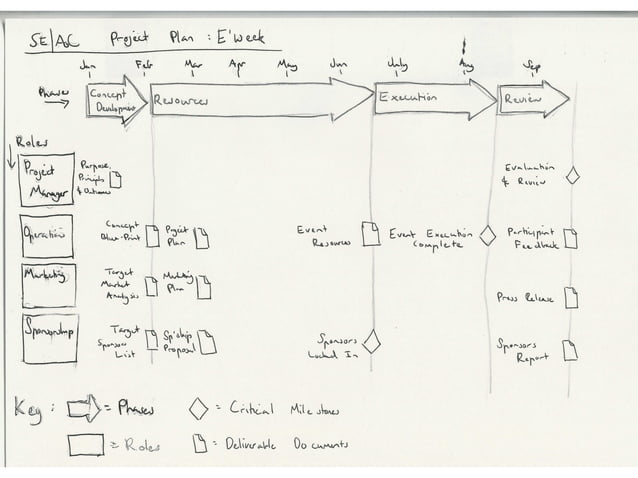 SE/AoC Project Plan : E'Week
Jan Febr Mar Apr May Jun July Aug Sep
Phases
Concept
Development
Resources
Execution
Review
Roles
Project
Manager
Purpose,
Principles
& Outcomes
Evaluation
& Review
Operations
Concept
Blue-Print
Project
Plan
Event
Resources
Event Execution
Complete
Participant
Feedback
Marketing
Target
Market
Analysis
Marketing
Plan
Press Release
Sponsorship
Target
Sponsor
List
Sp'ship
Proposal
Sponsors
Locked In
Sponsors
Report
Key :
= Phases
= Critical Mile stones
= Roles
= Deliverable Documents